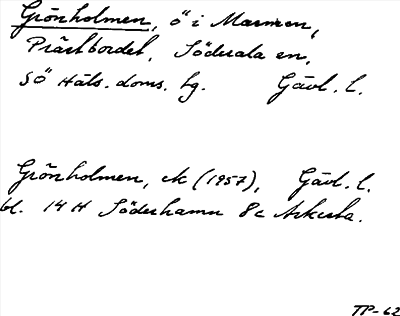 Grönholmen, ö i Marmen,
Prästbordet, Söderala sn,
SÖ Häls. doms. tg. Gävl. l.
Grönholmen, ek (1957), Gävl. l.
bl. 14 H Söderhamn 8 c Askesta.
TP-62